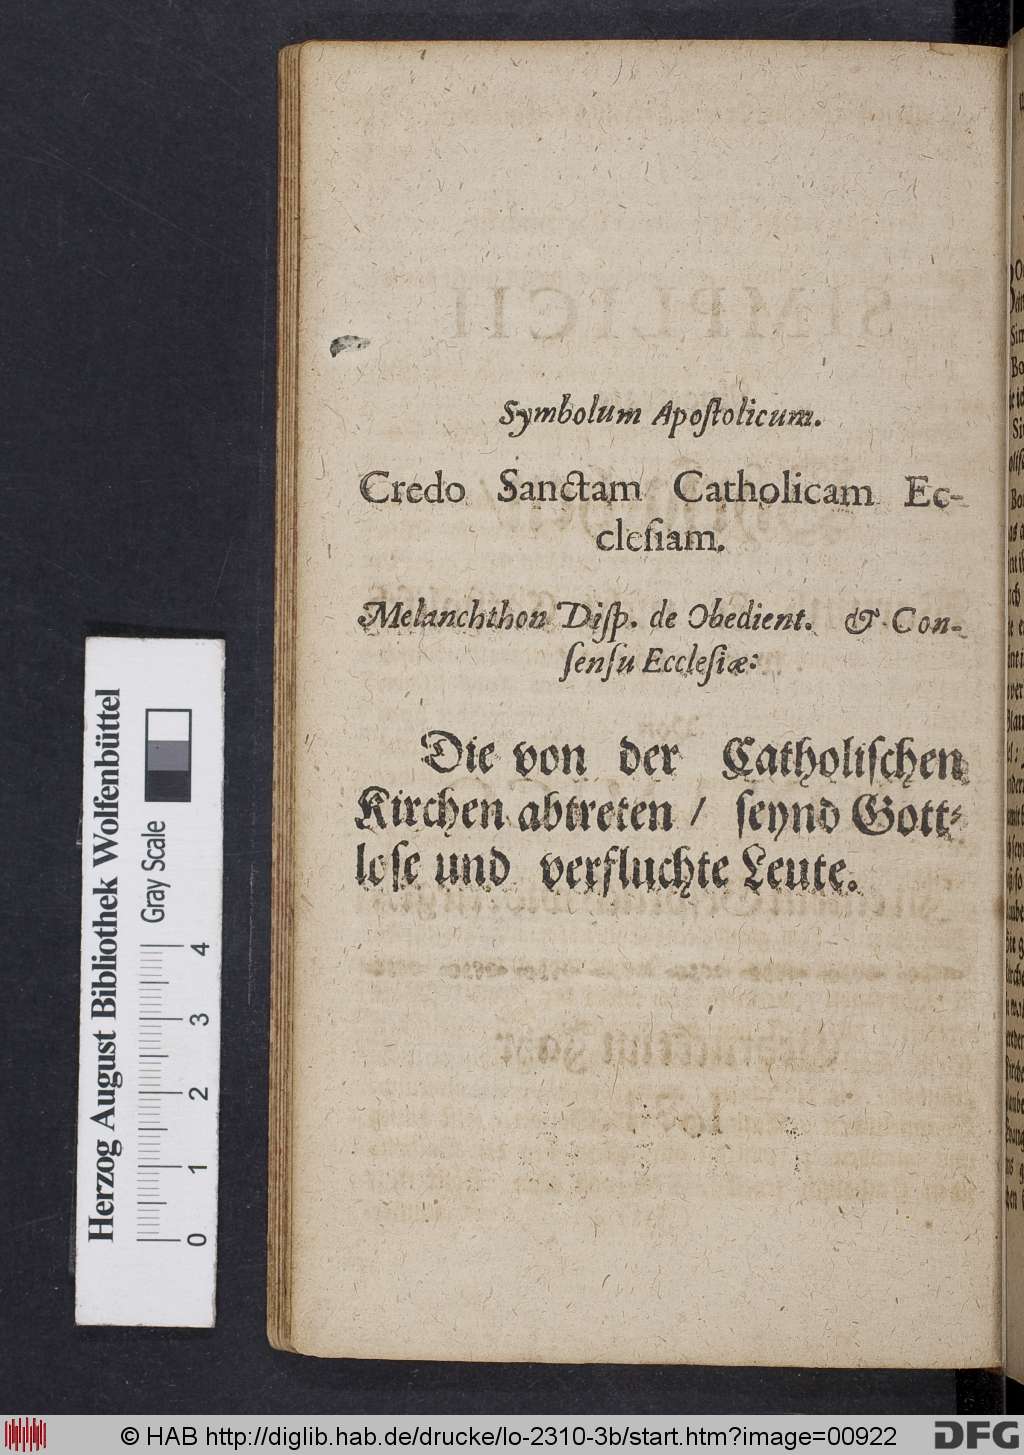 Symbolum Apoſtolicum.
Credo Sanctam Catholicam Ec-
cleſiam.
Melanchthon Diſp. de Obedient. & Con-
ſenſu Eccleſiæ:
Die von der Catholiſchen
Kirchen abtreten / ſeynd Gott-
loſe und verfluchte Leute.
Herzog August Bibliothek Wolfenbüttel
Gray Scale
0 1 2 3 4
© HAB http://diglib.hab.de/drucke/lo-2310-3b/start.htm?image=00922
DFG